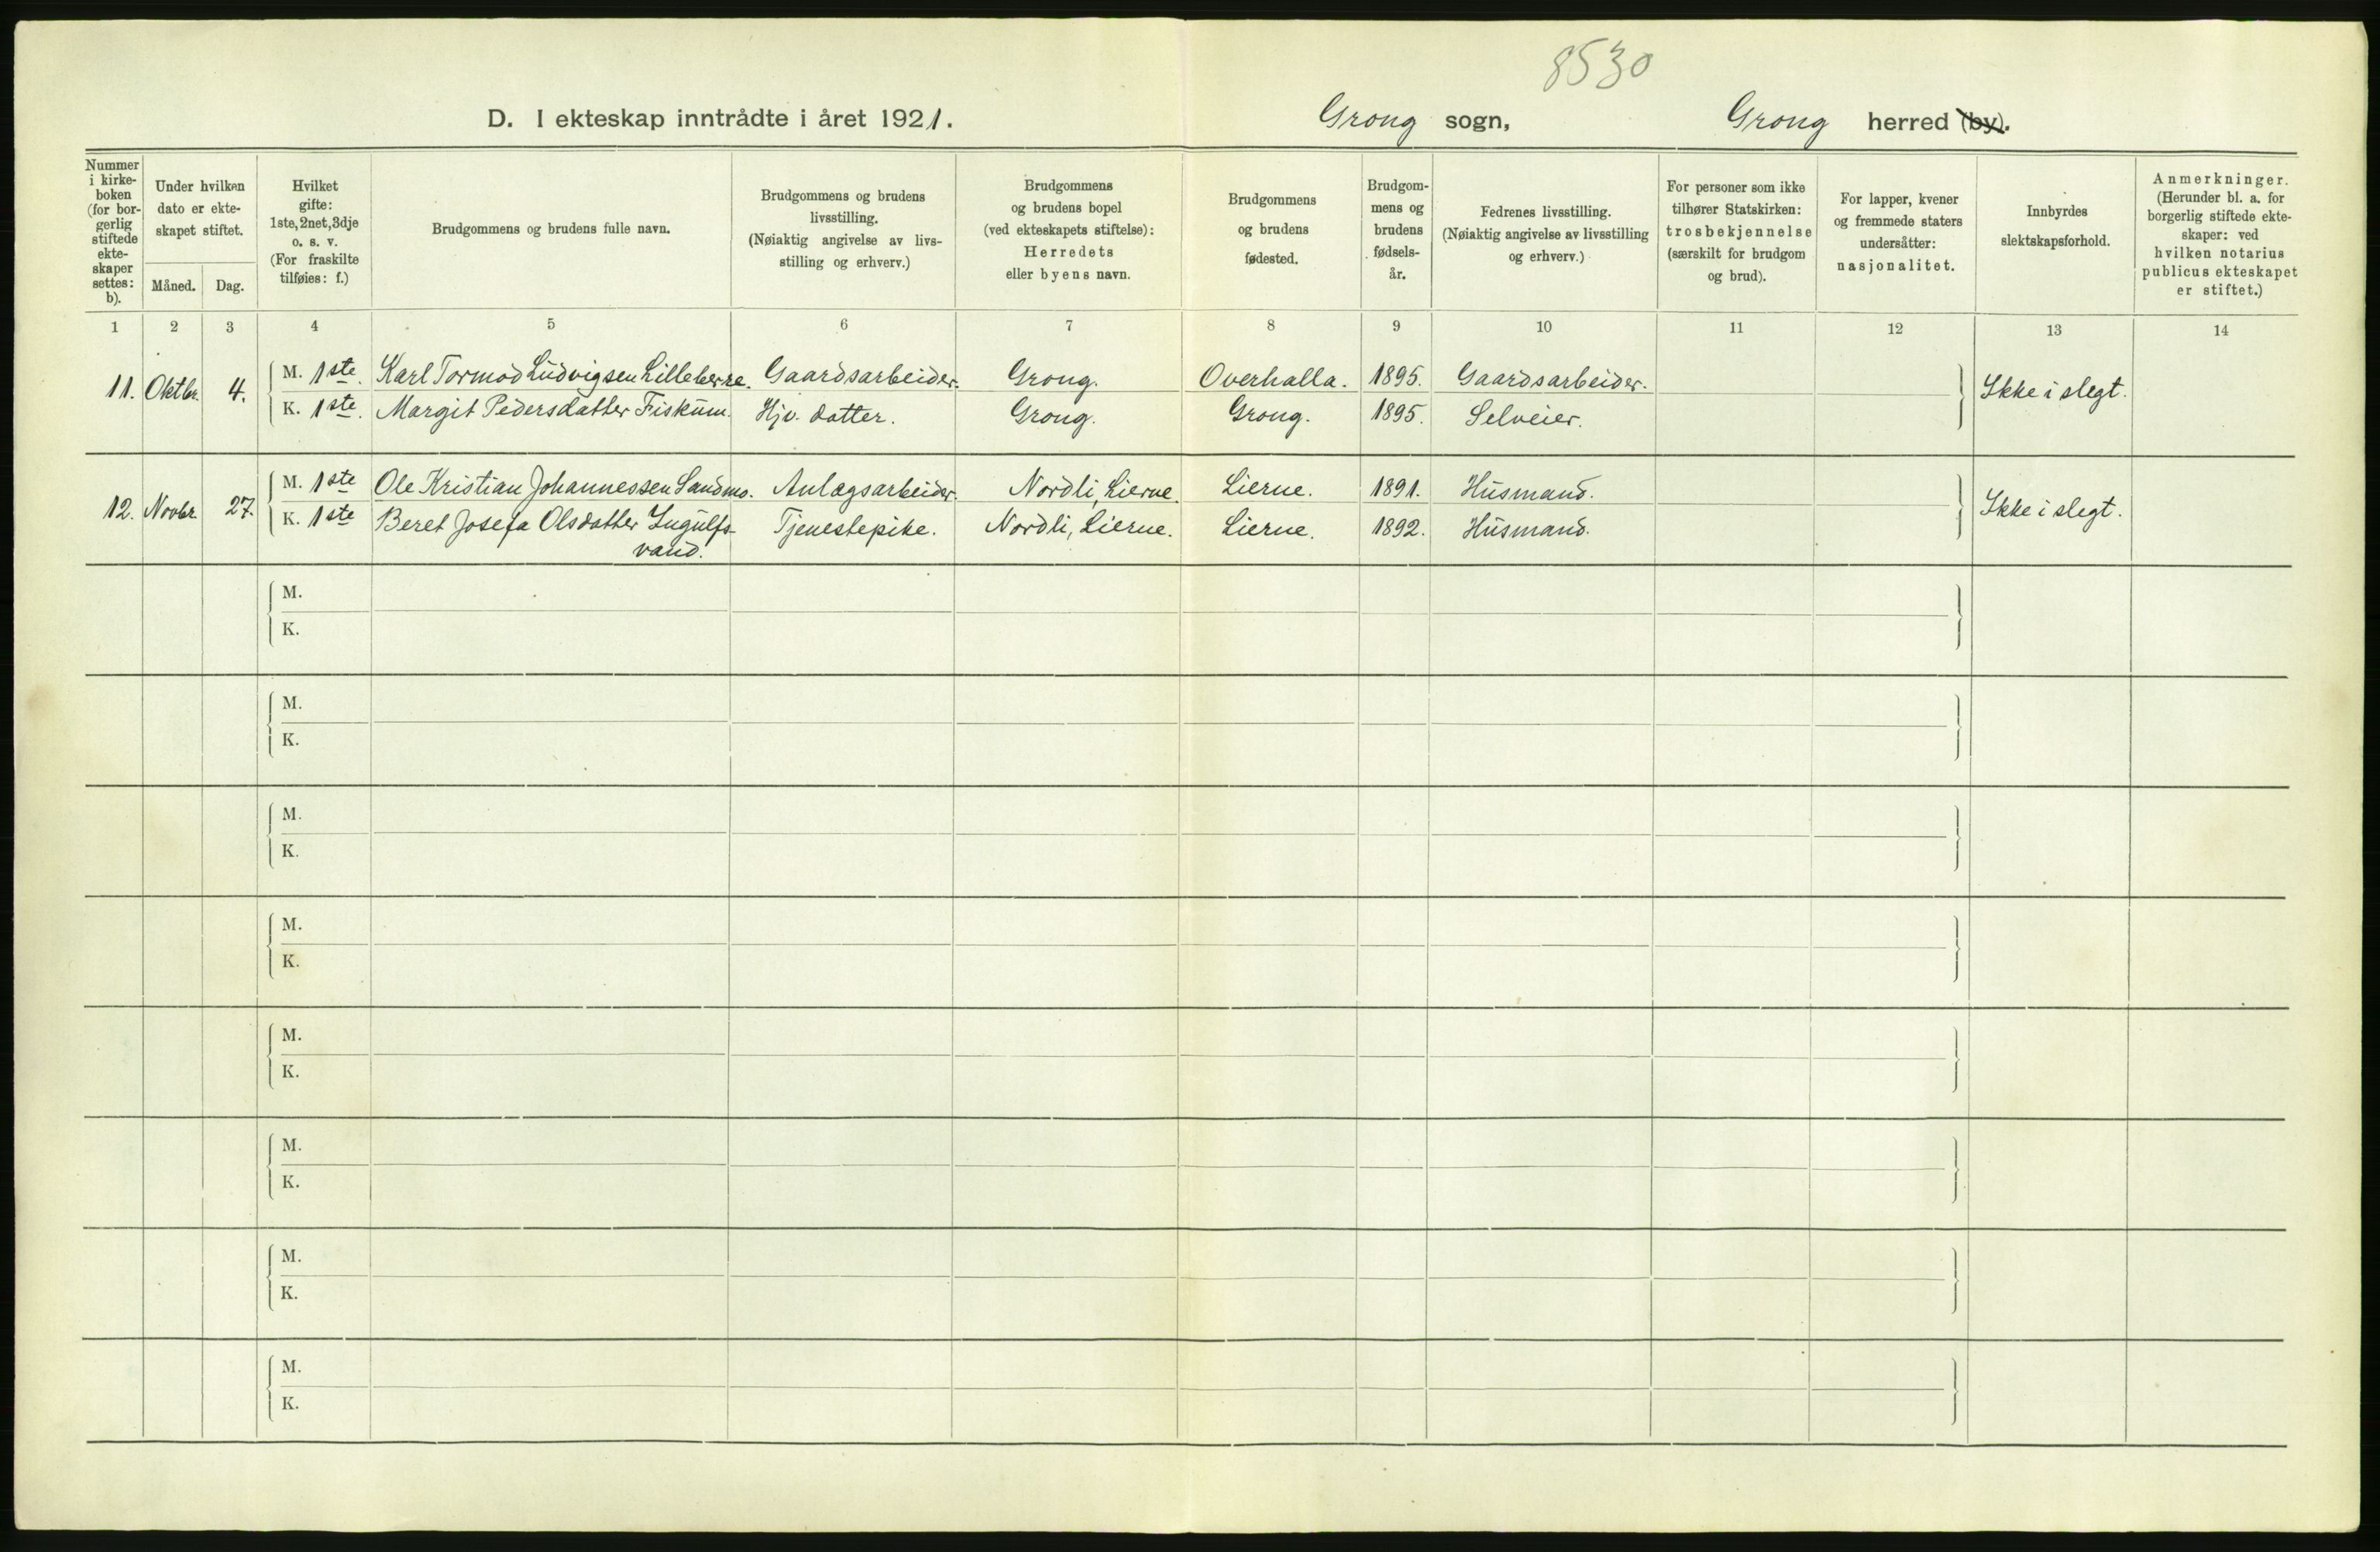 8530
D. I ekteskap inntrådte i året 1921. Grong sogn, Grong herred (by).
Nummer
i kirke-
boken
(for bor-
gerlig
stiftede
ekte-
skaper
settes:
b).
Under hvilken
dato er ekte-
skapet stiftet.
Måned. Dag.
Hvilket
gifte:
1ste, 2net, 3dje
o. s. v.
(For fraskilte
tilføies: f.)
Brudgommens og brudens fulle navn.
Brudgommens og brudens
livsstilling.
(Nøiaktig angivelse av livs-
stilling og erhverv.)
Brudgommens
og brudens bopel
(ved ekteskapets stiftelse):
Herredets
eller byens navn.
Brudgommens
og brudens
fødested.
Brudgom-
mens og
brudens
fødsels-
år.
Fedrenes livsstilling.
(Nøiaktig angivelse av livsstilling
og erhverv.)
For personer som ikke
tilhører Statskirken:
trosbekjennelse
(særskilt for brudgom
og brud).
For lapper, kvener
og fremmede staters
undersåtter:
nasjonalitet.
Innbyrdes
slektskapsforhold.
Anmerkninger.
(Herunder bl. a. for
borgerlig stiftede ekte-
skaper: ved
hvilken notarius
publicus ekteskapet
er stiftet.)
1 2 3 4 5 6 7 8 9 10 11 12 13 14
11. Oktbr. 4. M. 1ste. Karl Tormod Ludvigsen Lilleberre. Gaardsarbeider. Grong. Overhalla. 1895. Gaardsarbeider. Ikke i slegt.
K. 1ste. Margit Pedersdatter Fiskum. Hjv. datter. Grong. Grong. 1895. Selveier.
12. Novbr. 27. M. 1ste Ole Kristian Johannessen Sandmo. Anlægsarbeider. Nordli, Lierne. Lierne. 1891. Husmand. Ikke i slegt.
K. 1ste Beret Josefa Olsdatter Ingulfs- Tjenestepike. Nordli, Lierne. Lierne. 1892. Husmand.
vand.
M.
K.
M.
K.
M.
K.
M.
K.
M.
K.
M.
K.
M.
K.
M.
K.